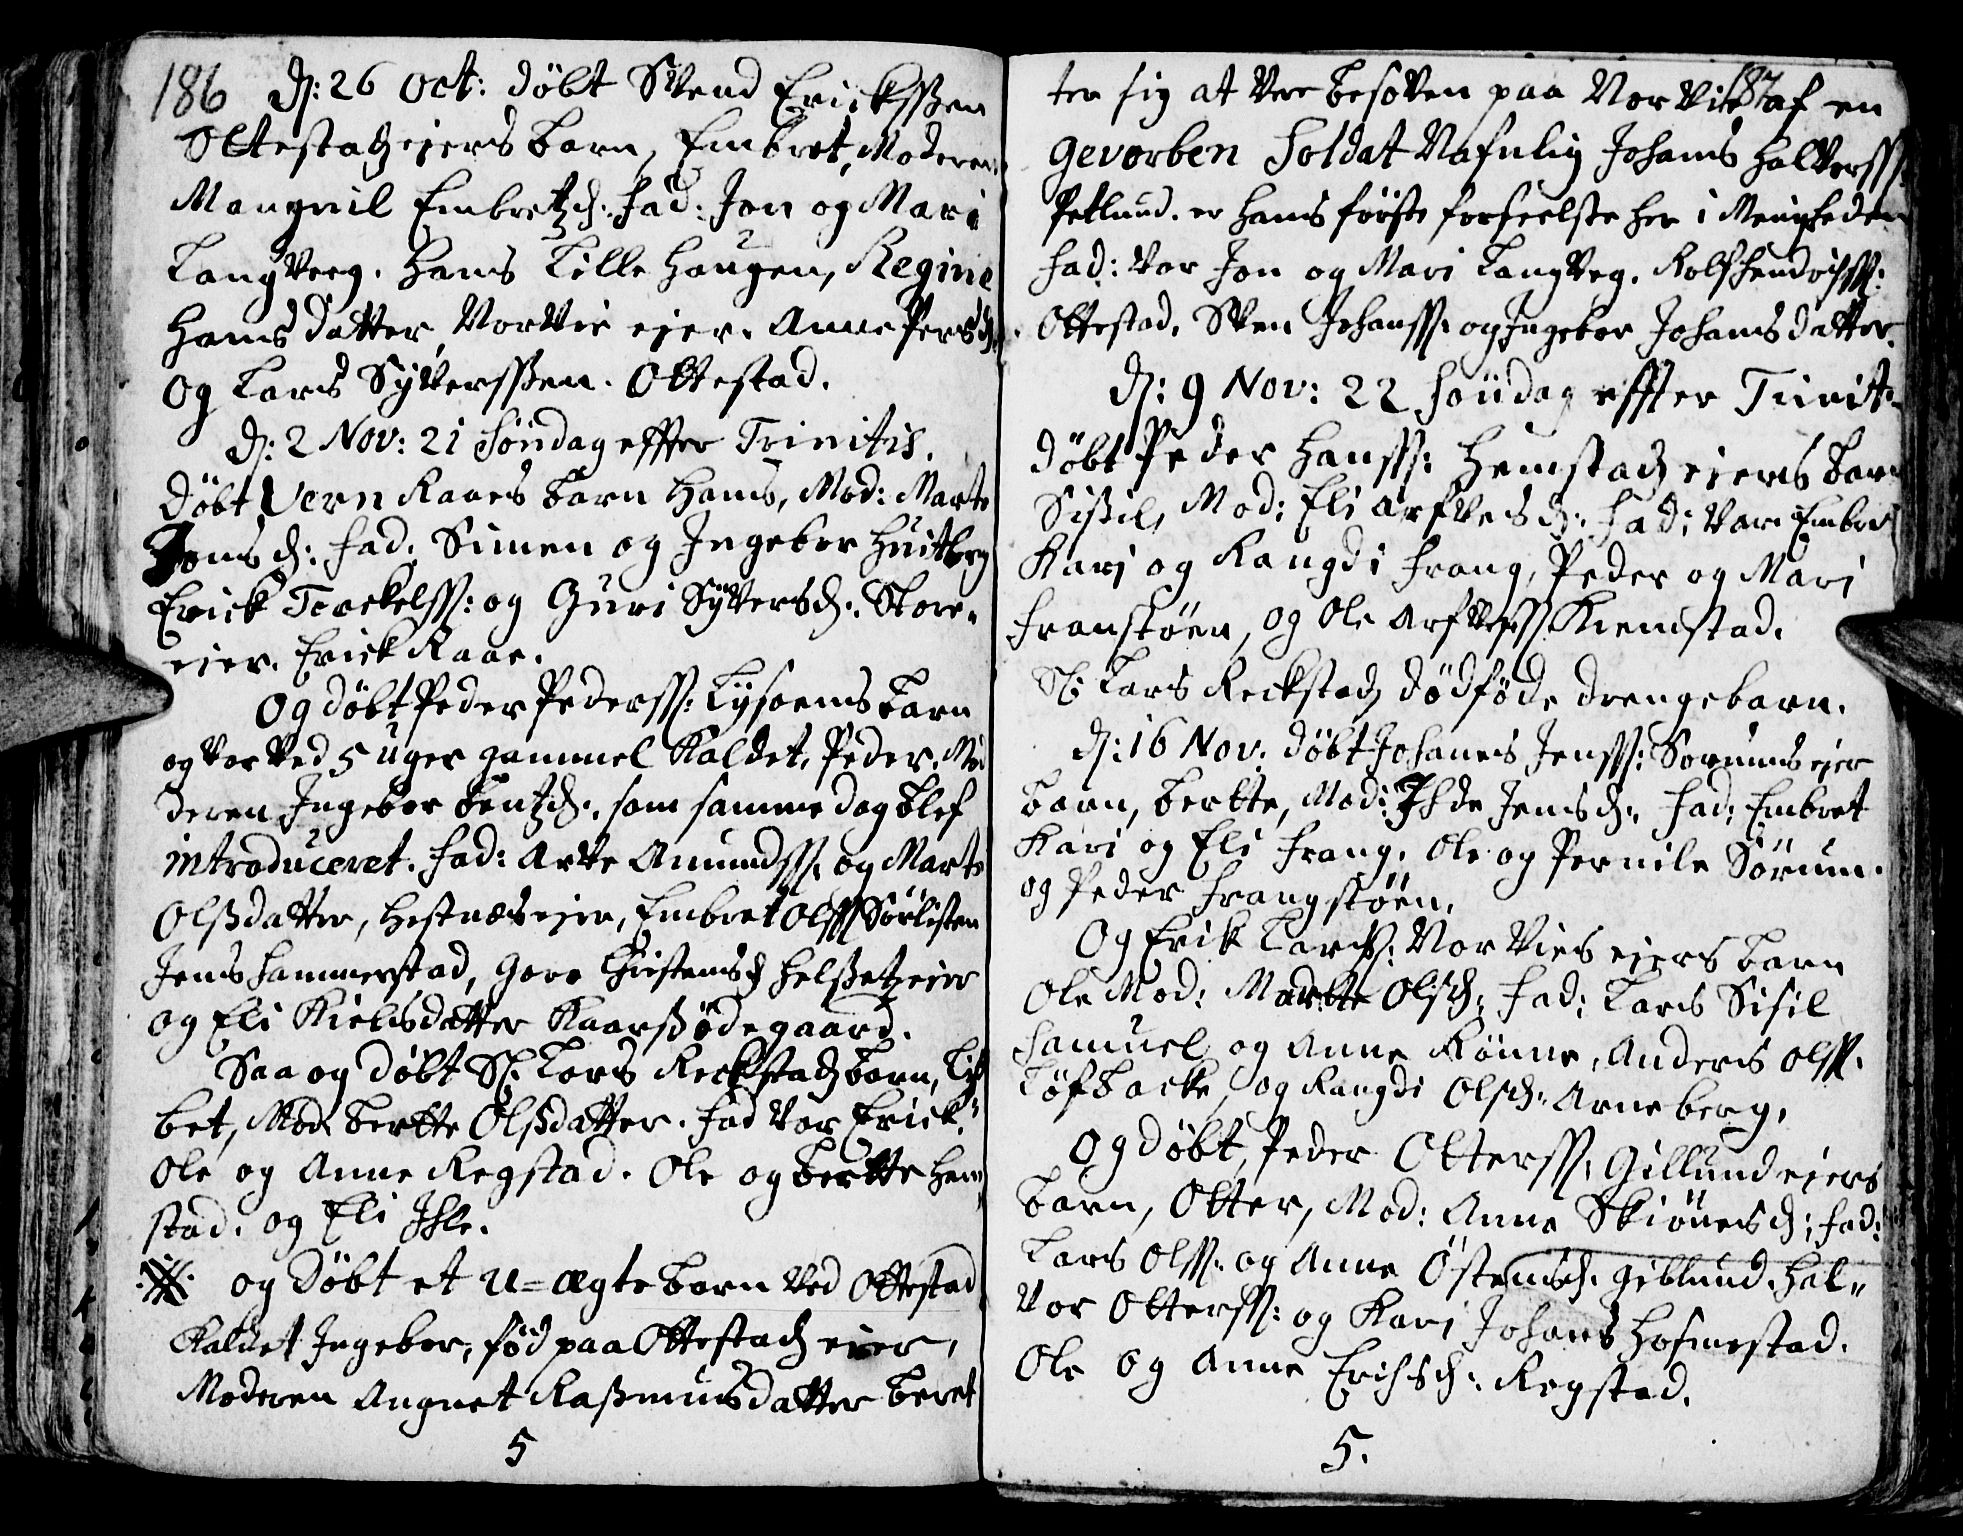 186 D: 26 Oct: Döbt Svend Ericksßen
Ottestad eiers barn, Embret, Moderen
Mangnil Embretzd: Fad: Jon og Mari
Langverg. Hans Lille Haugen, Regine
Hans datter, Norvie eier. Anne Persd:
og Lars Syversßen. Ottestad.
D: 2 Nov: 21 Söndag effter Trinitis.
Döbt Vern Raaes barn Hans, Mod: Marte
Jonsd: Fad. Simen og Ingebor Huitberg
Erick Torckelss: og Guri Syversd: Store-
eier. Erick Raae.
Og döbt Peder Pederss: Lysoens barn
og var ved 5 uger gammel Kaldet, Peder. Mo
deren Ingebor bentzd:, som samme dag blef
introduceret. Fad: Arve Amundss: og Marte
Olßdatter, Hestnæs eier, Embret Olss Sörlisten
Jens Hammerstad, Gore Christensd Helsetz eier
og Eli Kielsdatter Kaarß ödegaard.
Saa og döbt Sl: Lars Reckstadz barn, Lis
bet, Mod. bertte Olßdatter. Fad var Erick.
Ole og Anne Regstad. Ole og bertte Hem
stad. og Eli Ihle.
og döbt et u=ægte barn ved Ottestad
Kaldet Ingebor, föd paa Ottestadz eier,
Moderen Angnet Raßmusdatter beret
5
187
ter sig at vere besoven paa Norvie af en
gevorben Soldat Nafnlig Johans Halverss:
Petlund. er hans förste forseelse her i Menigheden
Fad: var Jon og Mari Langveg. Rolf Hendrichss:
Ottestad, Sven Johanss: og Ingebor Johans datter.
D: 9 Nov: 22 Söndag effter Trinit-
döbt Peder Hanss: Hemstadz eiers barn
Sißil, Mod: Eli Arfvesd: Fad: var Embret
Kari og Rangdi Frang, Peder og Mari
Franstöen, og Ole Arfvess: Kiemstad.
Sl: Lars Reckstadz dödföde drengebarn.
D: 16 Nov. döbt Johanes Jenss: Sorums eier
barn, bertte, Mod: Ihde Jensd:, Fad: Embret
Kari og Eli Frang. Ole og Pernile Sörum.
og Peder Frangstöen.
Og Erik Larss: Nor Vies eiers barn
Ole Mod: Martte Olsd: Fad: Lars Sisil
Samuel og Anne Könne, Anders Olss.
Töfbacke og Rangdi Olsd: Arneberg.
Og döbt, Peder Otterss: Gillund eiers
barn, Otter, Mod: Anne Skiönesd: Fad:
Lars Olss: og Anne Östensd. Giblund. Hal-
vor Otterss: og Kari Johans Hofmestad.
Ole og Anne Erichsd: Regstad.
5.